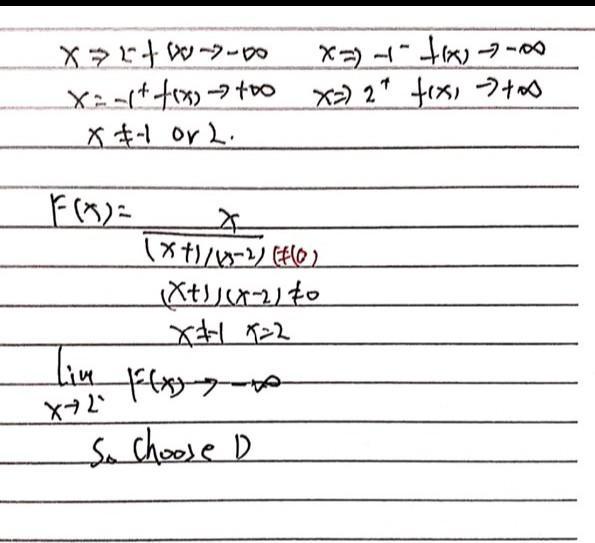 x ⇒ 2⁻ f(x) → -∞ x ⇒ -1⁻ f(x) → -∞
x = -1⁺ f(x) → +∞ x ⇒ 2⁺ f(x) → +∞
x ≠ -1 or 2.
F(x) = x
(x+1)(x-2) (≠0)
(x+1)(x-2) ≠ 0
x ≠ -1 x=2
lim F(x) → -∞
x→2⁻
So Choose D